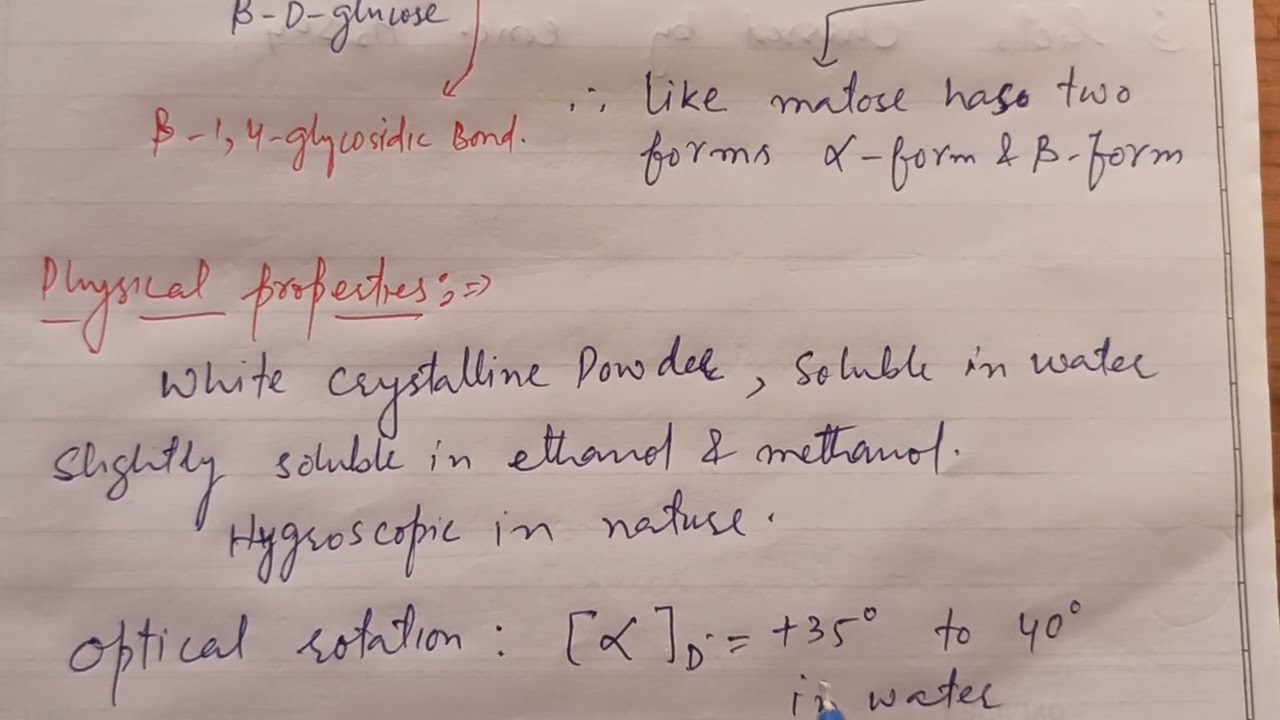 β-D-glucose
β-1,4-glycosidic Bond.
∴ like matose haso two
forms α-form & β-form
Physical properties:⇒
White crystalline Powder, Soluble in water
Slightly soluble in ethanol & methanol.
Hygroscopic in nature.
Optical rotation : [α]D = +35° to 40°
in water